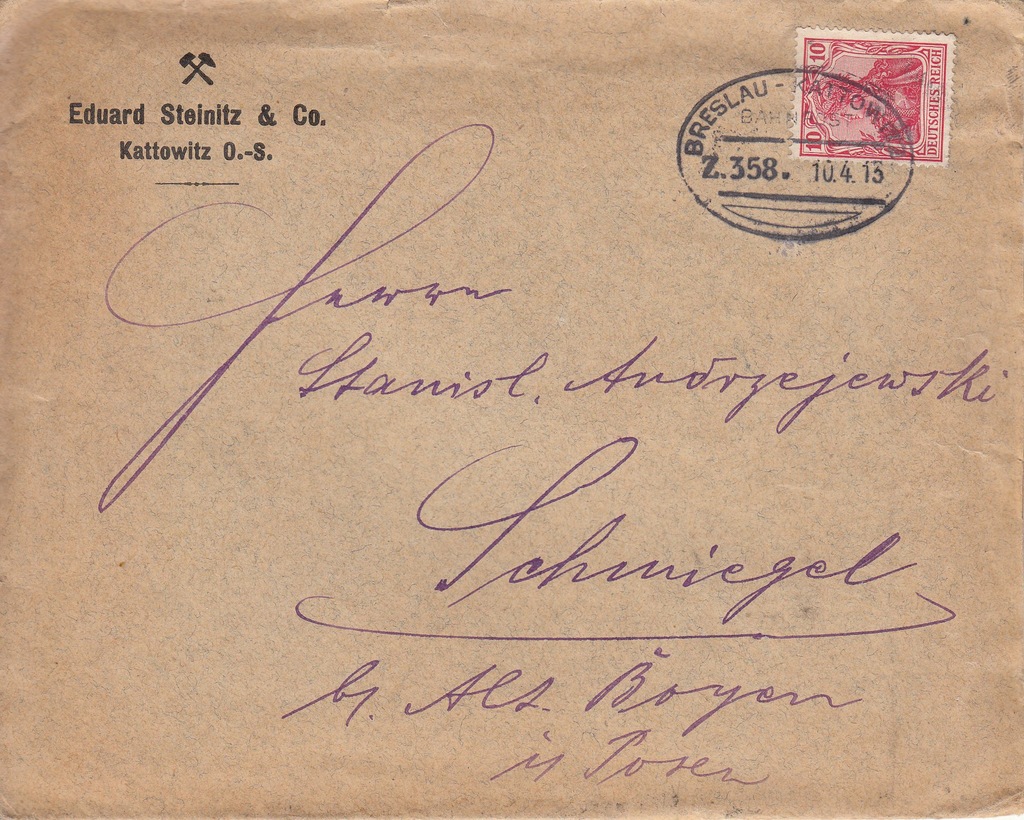 Eduard Steinitz & Co.
Kattowitz O.-S.
10
10
DEUTSCHES REICH
BRESLAU - KATTOWITZ
BAHNPOST
Z.358. 10.4.13
Herrn
Stanisl. Andrzejewski
Schmiegel
bz. Alt. Boyen
in Posen